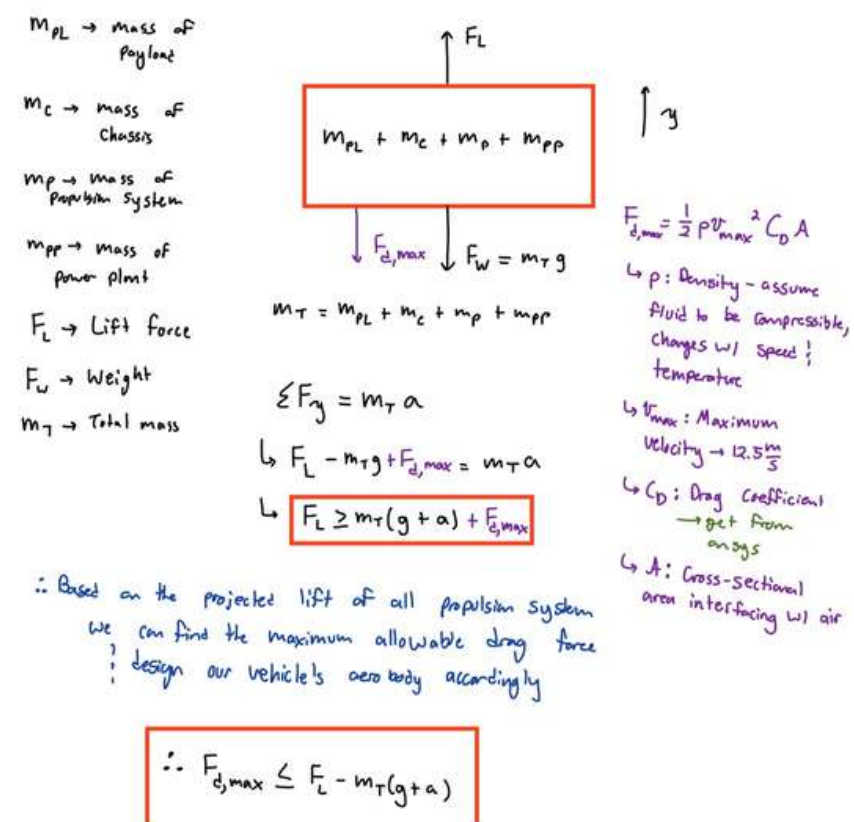 m_PL → mass of
Payload
m_C → mass of
Chassis
m_P → mass of
Propulsion System
m_PP → mass of
Power plant
F_L → Lift force
F_W → Weight
m_T → Total mass
F_L
m_PL + m_C + m_P + m_PP
y
F_d,max
F_W = m_T g
m_T = m_PL + m_C + m_P + m_PP
ΣF_y = m_T a
↳ F_L - m_T g + F_d,max = m_T a
↳ F_L ≥ m_T(g + a) + F_d,max
F_d,max = 1/2 ρ v_max² C_D A
↳ ρ: Density - assume
fluid to be compressible,
changes w/ speed &
temperature
↳ v_max: Maximum
velocity → 12.5 m/s
↳ C_D: Drag coefficient
→ get from
ansys
↳ A: Cross-sectional
area interfacing w/ air
∴ Based on the projected lift of all propulsion system
we can find the maximum allowable drag force
& design our vehicle's aero body accordingly
∴ F_d,max ≤ F_L - m_T(g + a)